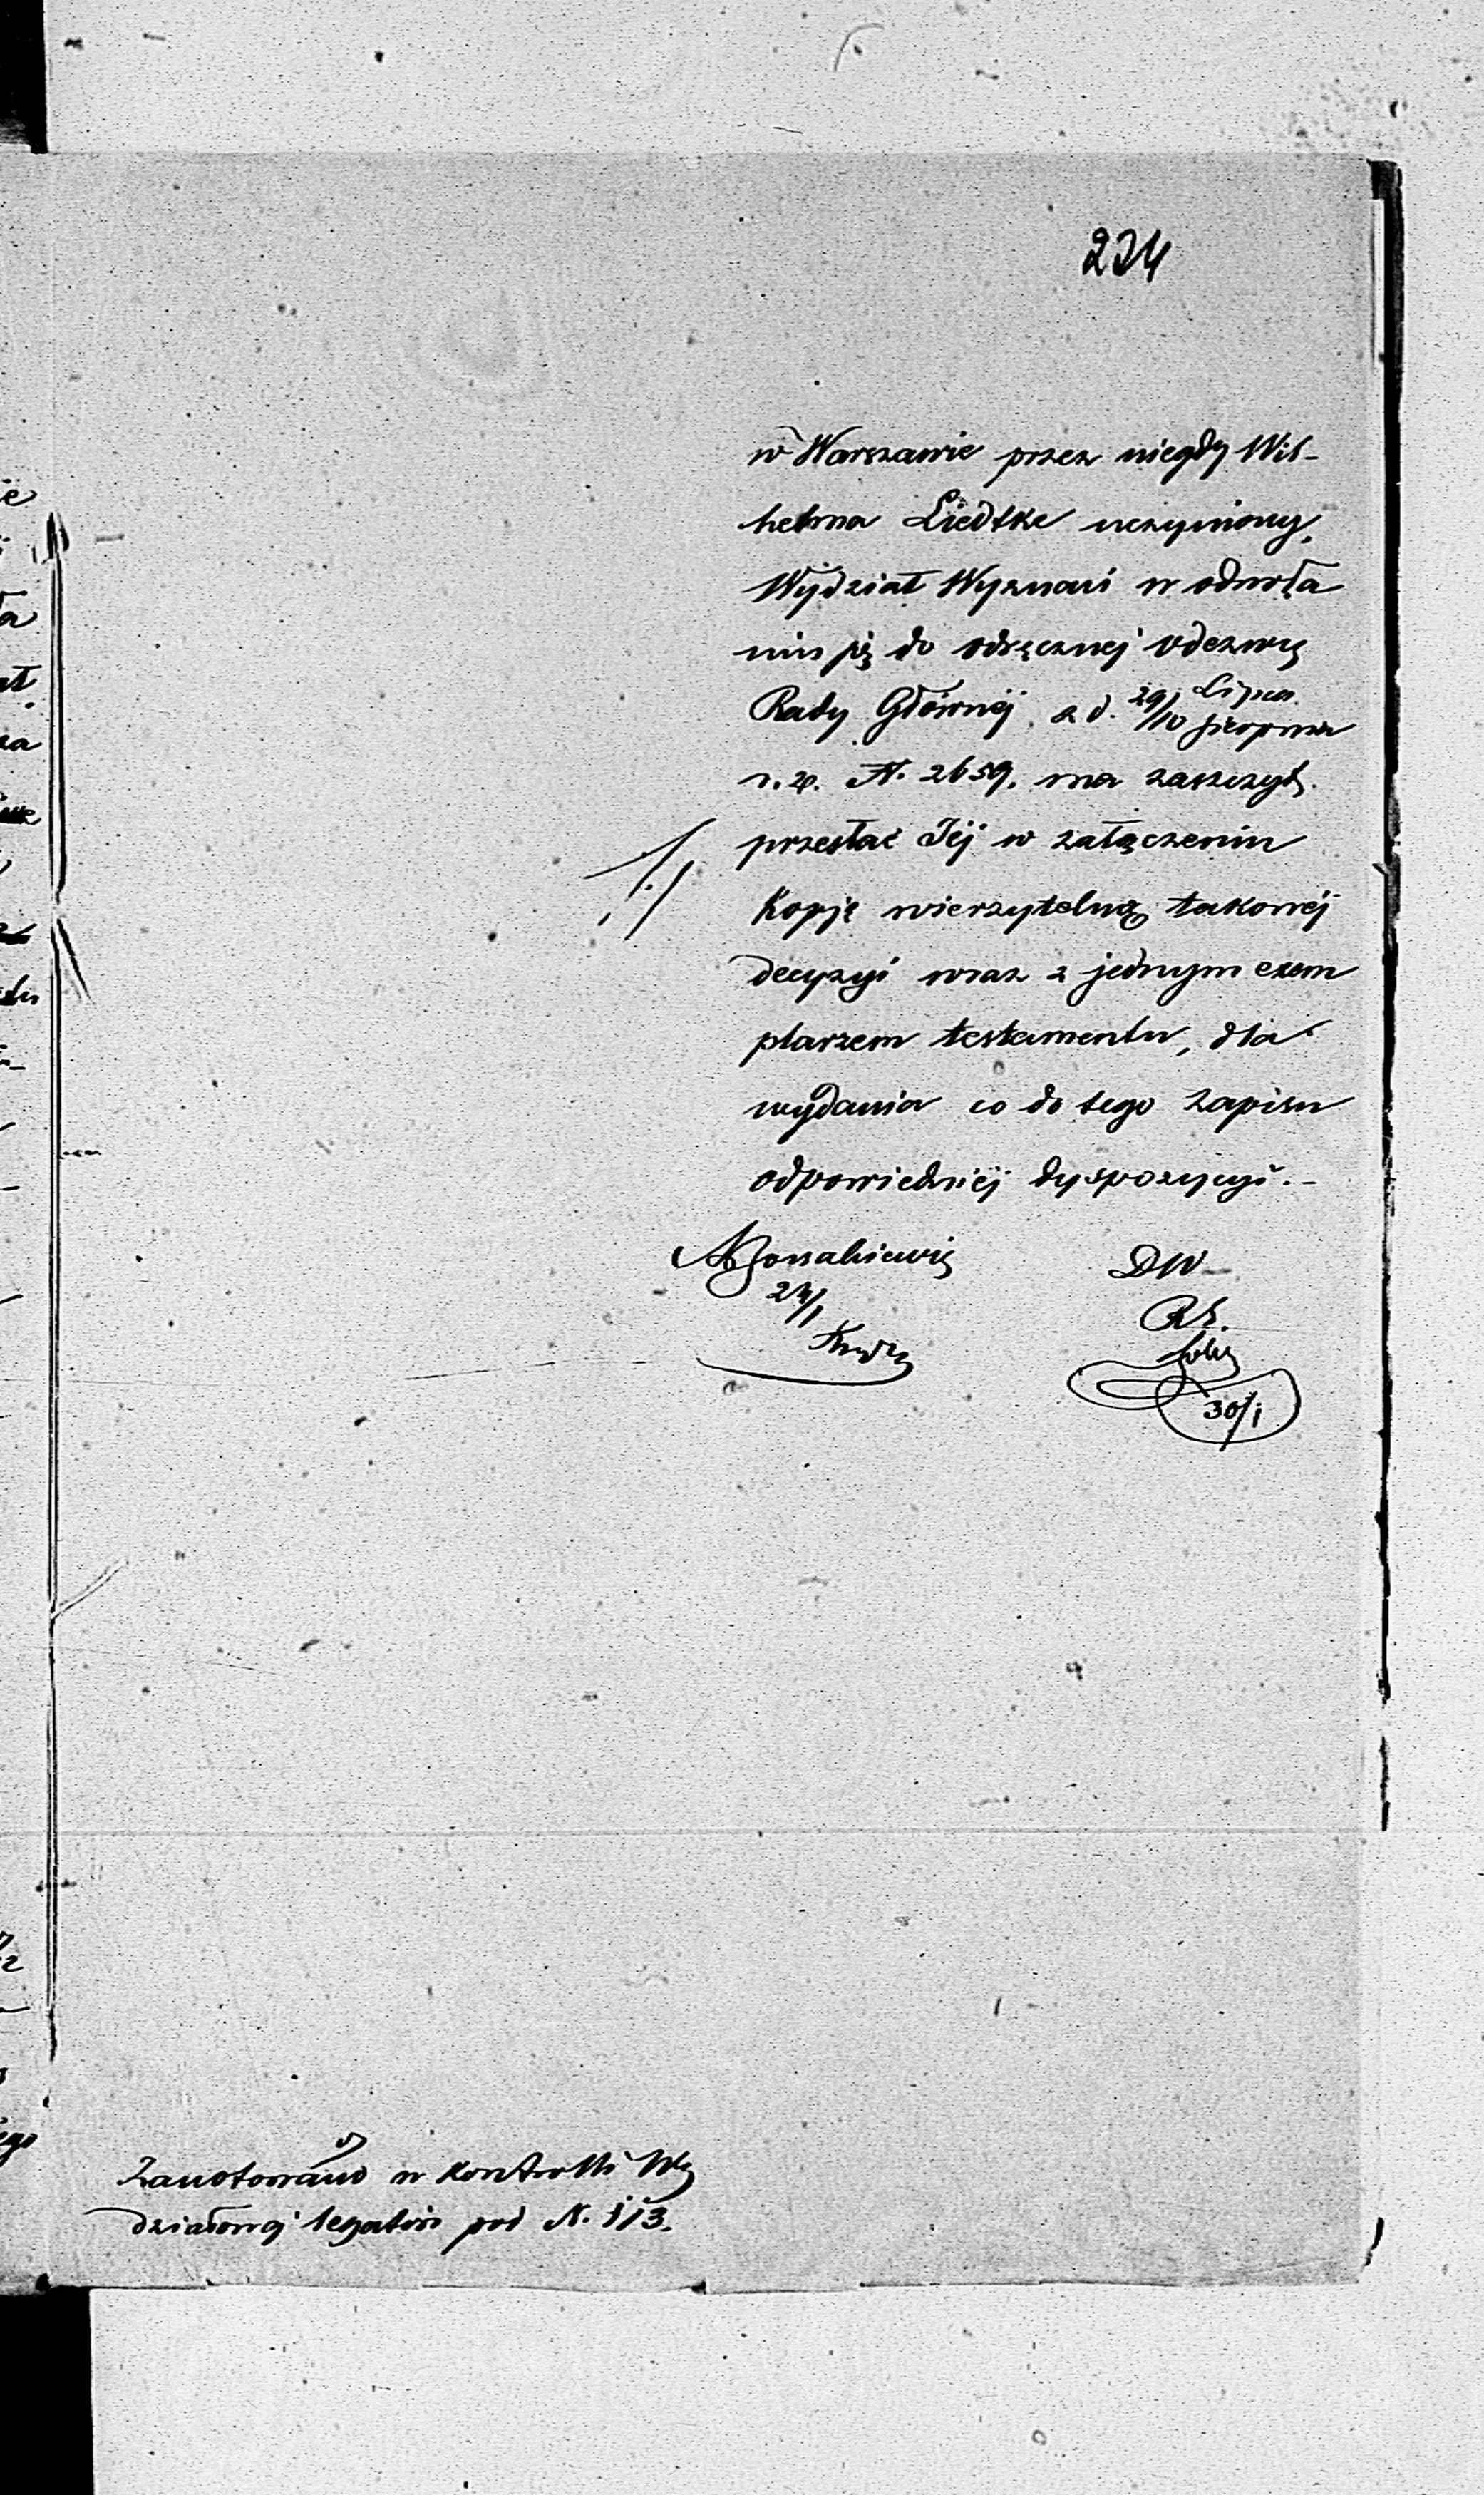 234
w Warszawie przez niegdy Wil-
helma Liedtke uczyniony,
Wydział Wyznań w odwoła
niu się do odręcznej odezwy
Rady Głównéj z d. 29/10 Lipca/Sierpnia
r. z. N. 2659. ma zaszczyt
przesłać Jéj w załączeniu
Kopję wierzytelną takowéj
decyzyi wraz z jednym exem
plarzem testamentu, dla
wydania co do tego zapisu
odpowiedniéj dyspozycyi.-
24/1
DW
RS.
30/1
Zanotowano w Kontrolli Wy
działowej legatów pod N. 113.